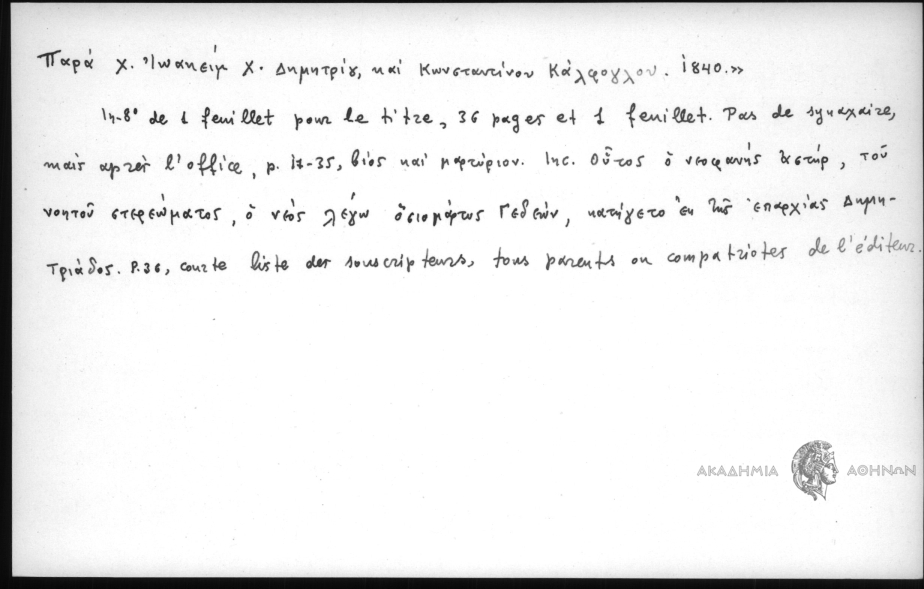 Παρά χ. Ἰωακείμ χ. Δημητρίȣ, καί Κωνσταντίνου Κάλφογλου. 1840.»
In-8° de 1 feuillet pour le titre, 36 pages et 1 feuillet. Pas de synaxaire,
mais après l'office, p. 17-35, βίος καί μαρτύριον. Inc. Οὗτος ὁ νεοφανής ἀστήρ, τοῦ
νοητοῦ στερεώματος, ὁ νεός λέγω ὁσιομάρτυς Γεδεών, κατήγετο ἐκ τῆς ἐπαρχίας Δημη-
τριάδος. P. 36, courte liste des souscripteurs, tous parents ou compatriotes de l'éditeur.
ΑΚΑΔΗΜΙΑ ΑΘΗΝΩΝ